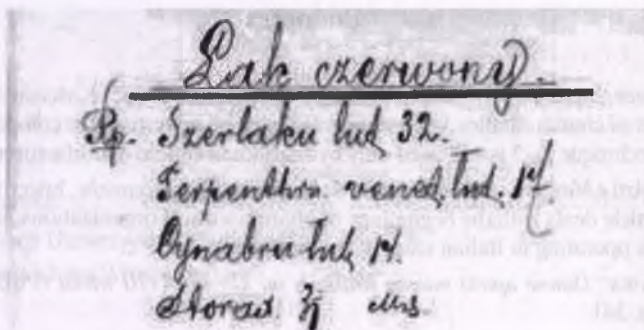 Lak czerwony.
Rp. Szerlaku łut 32.
Terpenthin venet. łut. 14.
Cynabru łut 14.
Storax ʒj